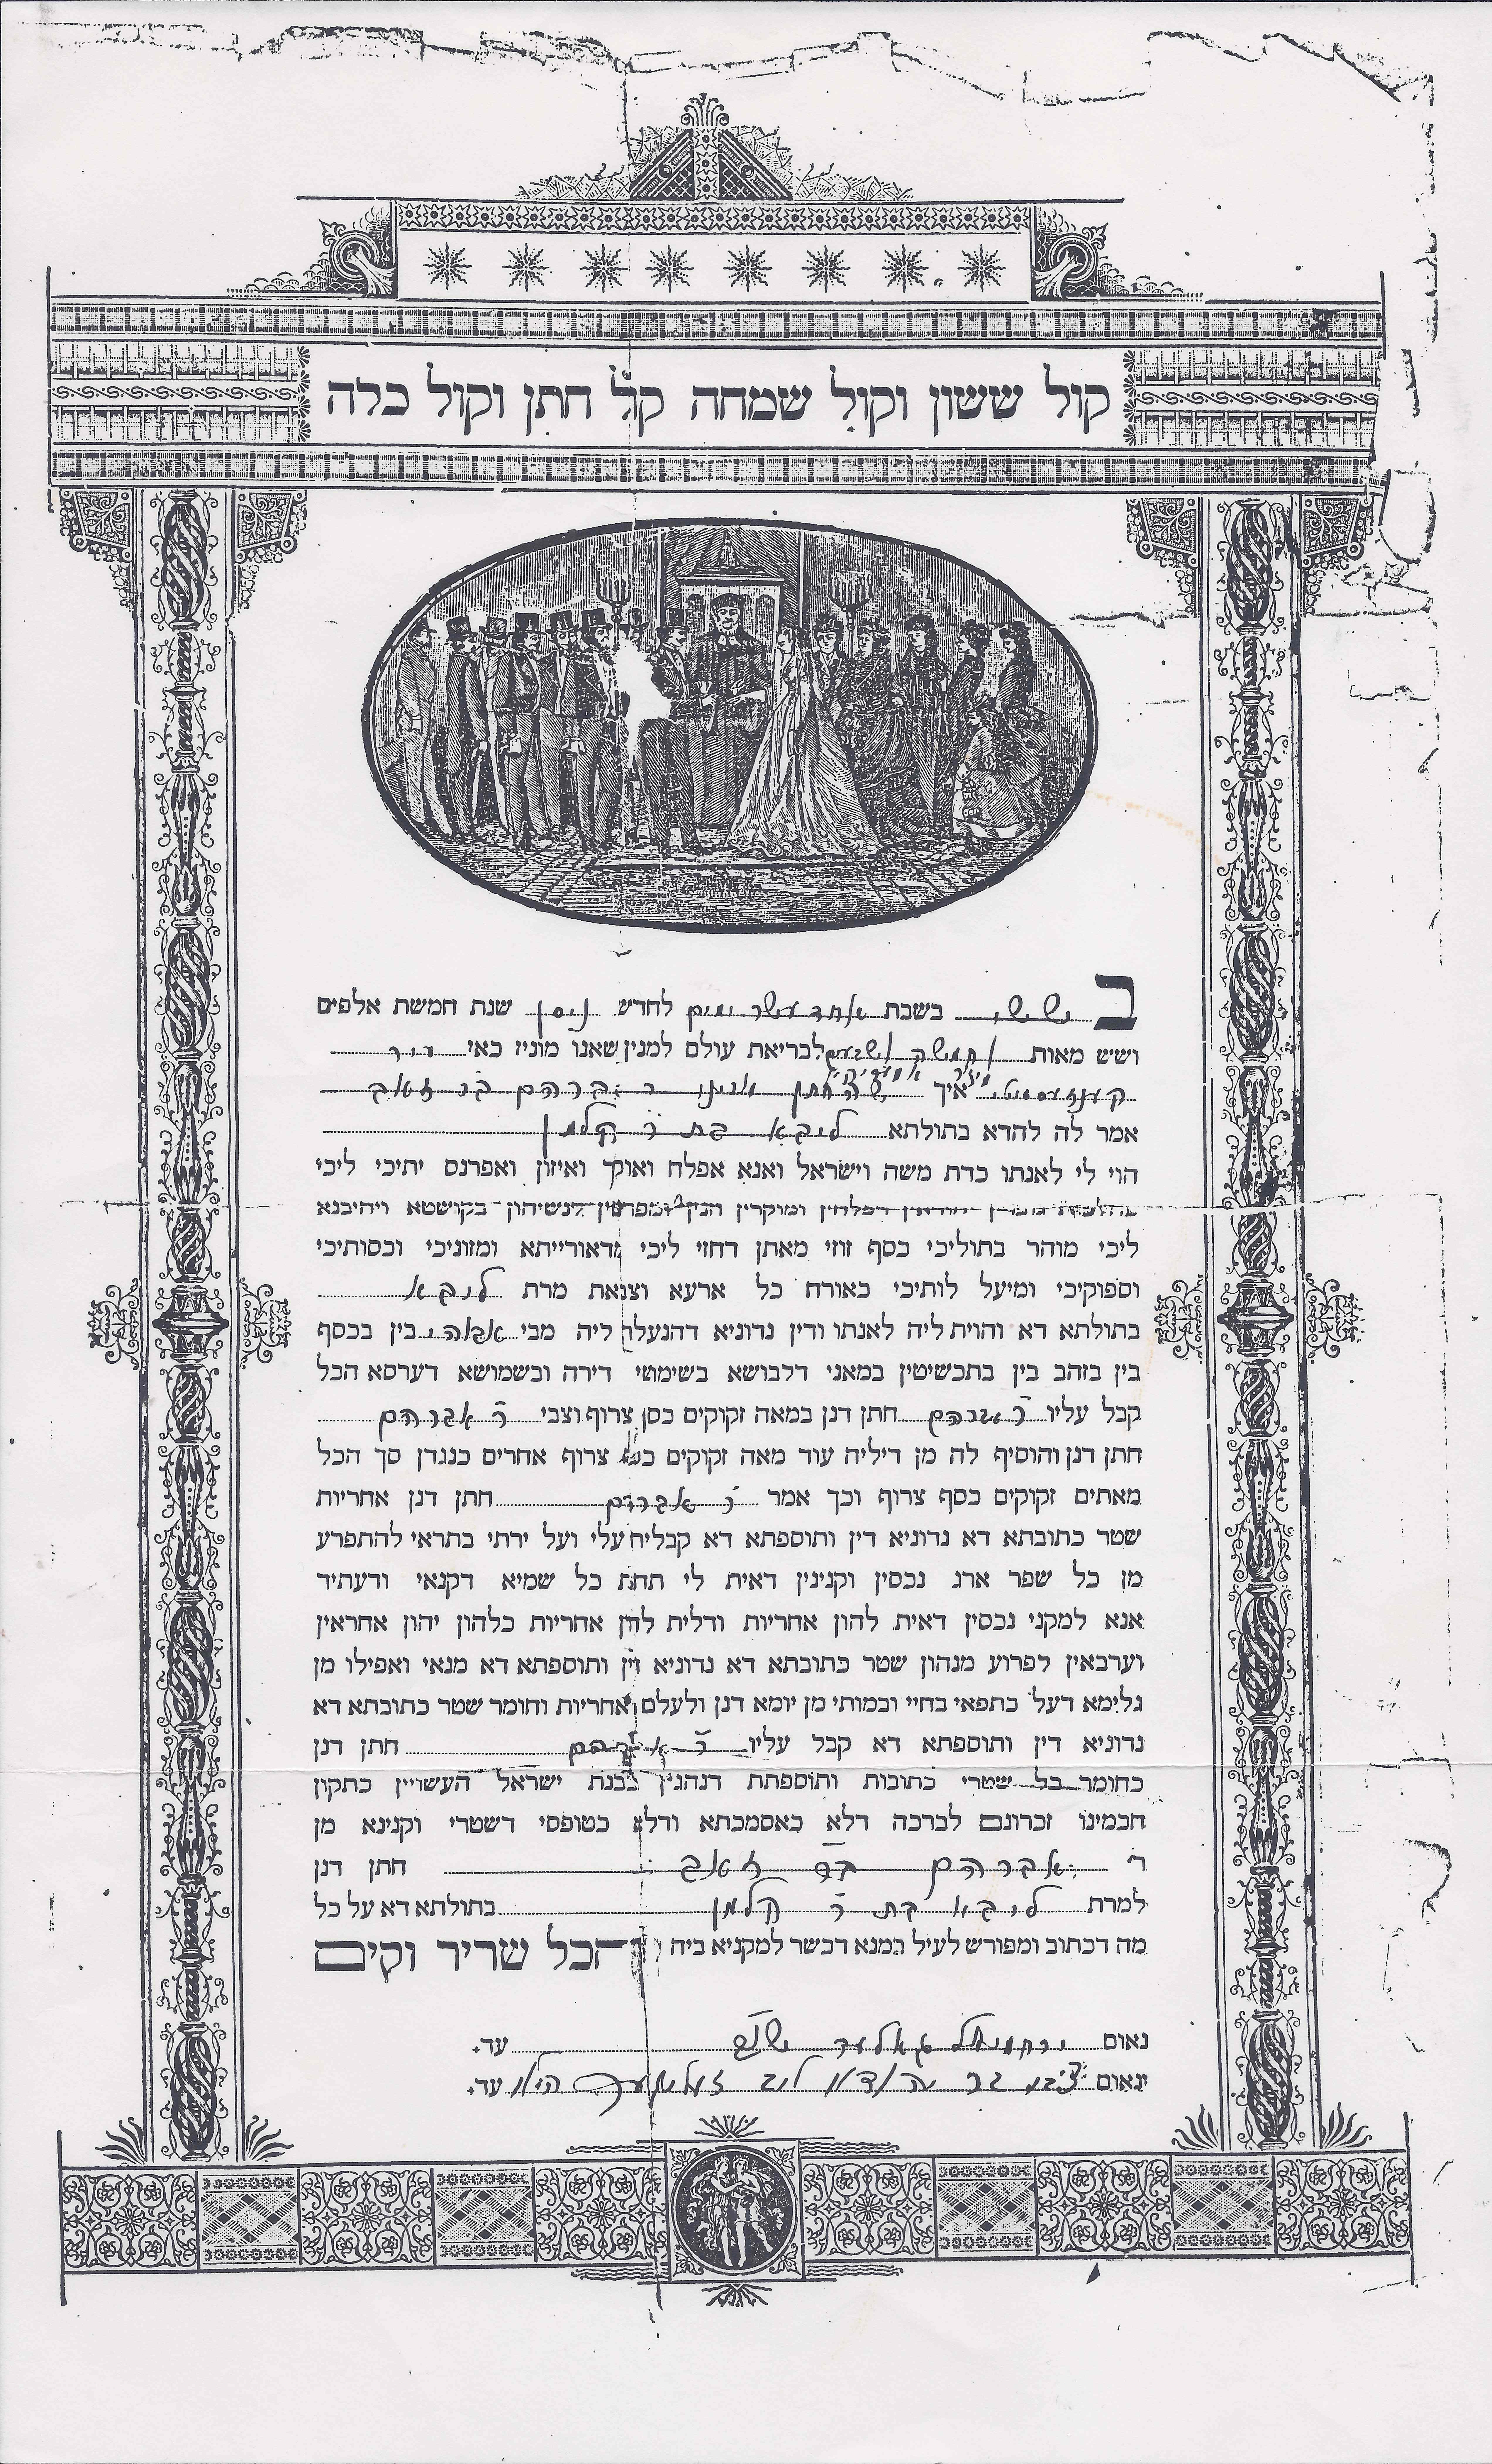 קול ששון וקול שמחה קול חתן וקול כלה
ב ששי בשבת אחד עשר ימים לחדש ניסן שנת חמשת אלפים
ושש מאות וחמשה ושבעים לבריאת עולם למנין שאנו מונין כאן
איך החתן ר אברהם בר זאב
אמר לה להדא בתולתא ליבא בת ר קלמן
הוי לי לאנתו כדת משה וישראל ואנא אפלח ואוקיר ואיזון ואפרנס יתיכי ליכי
כהלכות גוברין יהודאין דפלחין ומוקרין וזנין ומפרנסין לנשיהון בקושטא ויהיבנא
ליכי מוהר בתוליכי כסף זוזי מאתן דחזי ליכי מדאורייתא ומזוניכי וכסותיכי
וספוקיכי ומיעל לותיכי כאורח כל ארעא וצביאת מרת ליבא
בתולתא דא והוית ליה לאנתו ודין נדוניא דהנעלת ליה מבי אבוה בין בכסף
בין בזהב בין בתכשיטין במאני דלבושא בשימושי דירה ובשמושא דערסא הכל
קבל עליו ר אברהם חתן דנן במאה זקוקים כסף צרוף וצבי ר אברהם
חתן דנן והוסיף לה מן דיליה עוד מאה זקוקים כסף צרוף אחרים כנגדן סך הכל
מאתים זקוקים כסף צרוף וכך אמר ר אברהם חתן דנן אחריות
שטר כתובתא דא נדוניא דין ותוספתא דא קבלית עלי ועל ירתי בתראי להתפרע
מן כל שפר ארג נכסין וקנינין דאית לי תחת כל שמיא דקנאי ודעתיד
אנא למקני נכסין דאית להון אחריות ודלית להון אחריות כלהון יהון אחראין
וערבאין לפרוע מנהון שטר כתובתא דא נדוניא דין ותוספתא דא מנאי ואפילו מן
גלימא דעל כתפאי בחיי ובמותי מן יומא דנן ולעלם ואחריות וחומר שטר כתובתא דא
נדוניא דין ותוספתא דא קבל עליו ר אברהם חתן דנן
כחומר כל שטרי כתובות ותוספתת דנהגין בבנת ישראל העשויין כתקון
חכמינו זכרונם לברכה דלא כאסמכתא ודלא כטופסי דשטרי וקנינא מן
ר אברהם בר זאב חתן דנן
למרת ליבא בת ר קלמן בתולתא דא על כל
מה דכתוב ומפורש לעיל במנא דכשר למקניא ביה והכל שריר וקים
נאום ירחמיאל עד.
ונאום צבי בר יהודא לוב עד.